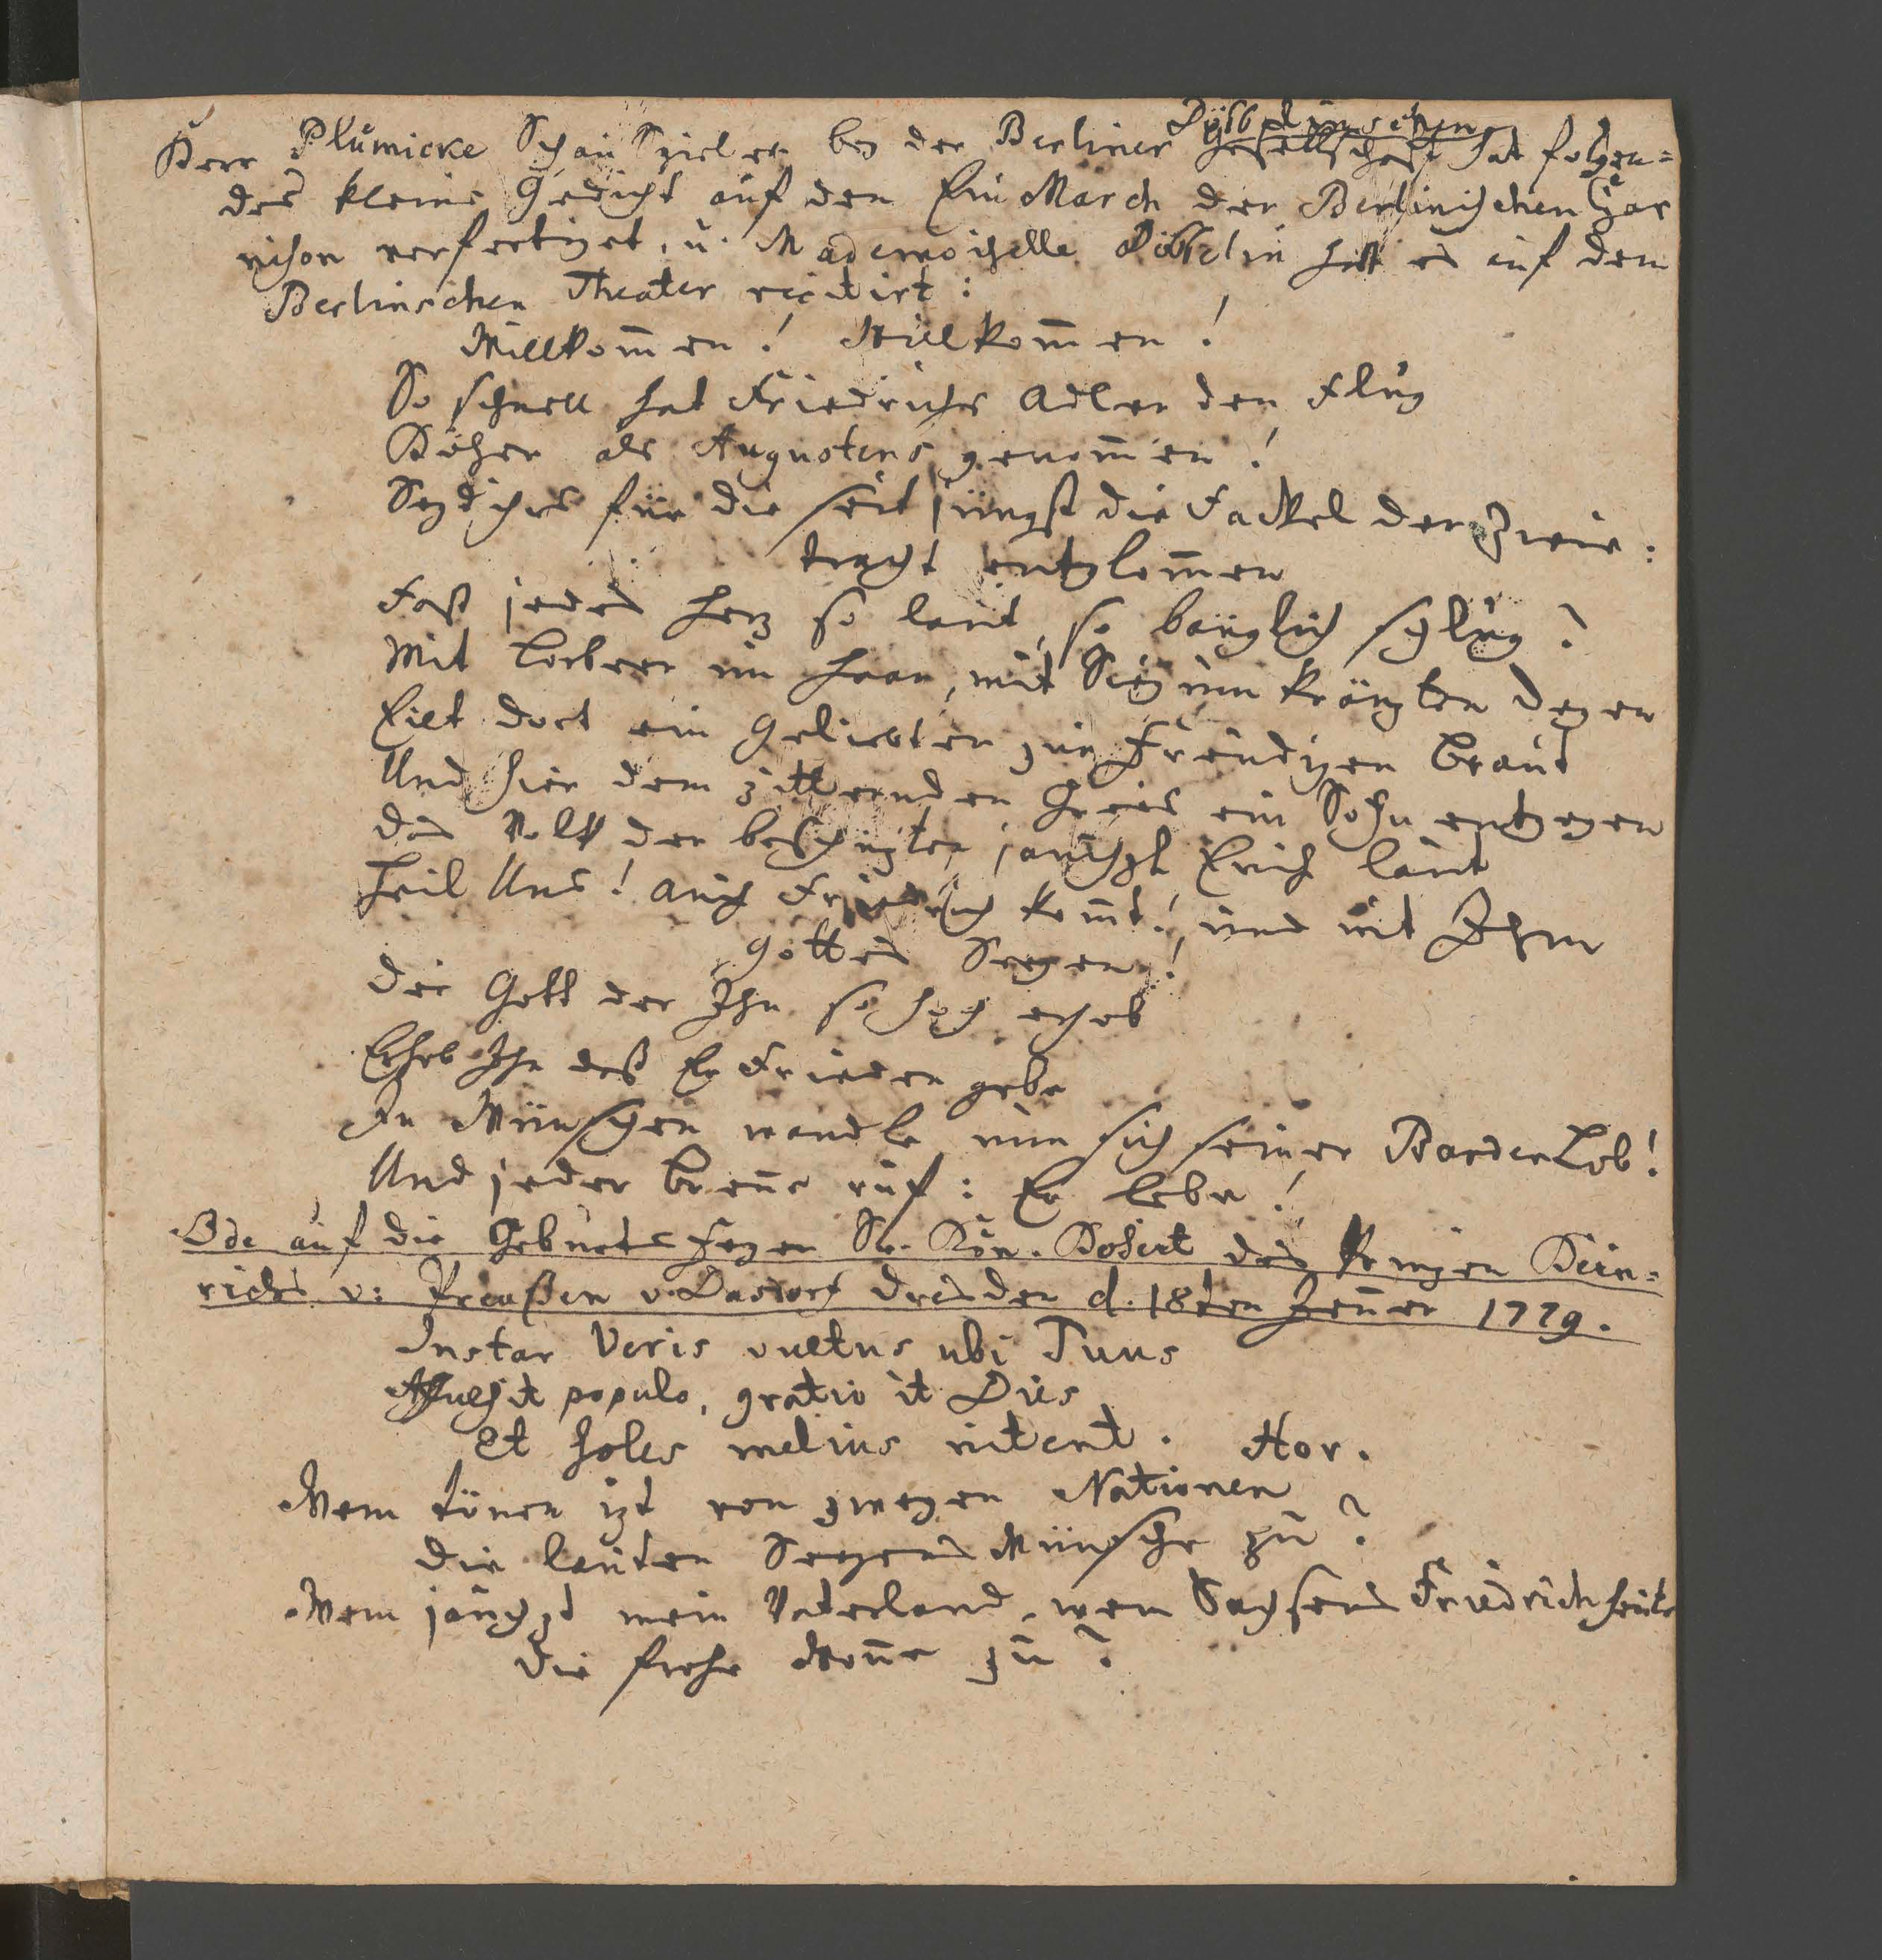 Döbbelinschen
Herr Plümicke SchauSpieler bey der Berliner Gesellschaft hat folgen=
des kleine Gedicht auf den EinMarch der Berlinischen Gar
nison verfertiget, u. Mademoiselle Döbbelin hatt es auf dem
Berlinschen Theater recitirt:
Willkom̅en! Willkom̅en!
So schnell hat Friedrichs Adler den Flug
Höher als Augustens genom̅en!
Seyd ihrs für die seit jüngst die Fackel der Zwie:
tragt entglom̅en
Fast jedes Herz so laut, so bänglich schlug?
Mit Lorbeer im Haar, mit Sieg umkränzten Degen
Eilt dort ein Geliebter zur Freudigen Braut
Und hier dem zitternden Greis ein Sohn entgegen
Das Volk der beschützter jauchzt Euch laut
Heil Uns! auch Friedrich kom̅t! und mit Ihm
Gottes Seegen!
Die Gott der Ihn so hoch erhob
Erhob Ihn daß Er Frieden gebe
In Wünschen wandle nun sich seiner Barden Lob!
Und jeder Bren̅e ruf: Er lebe!
Ode auf die Geburts Feyer Sr. Kön. Hoheit des Prinzen Hein=
richs v: Preußen v. Dasdorf Dresden d. 18ten Jen̅er 1779.
Instar Veris vultus ubi Tuus
Affulsit populo, gratio it Dies
Et soles melius nitent. Hor.
Wem tönen izt von zweyen Nationen
Die lauten Seegens Wünsche zu?
Wem jauchzt mein Vaterland, wem Sachsens Friedrich heute
Die frohe Won̅e zu?